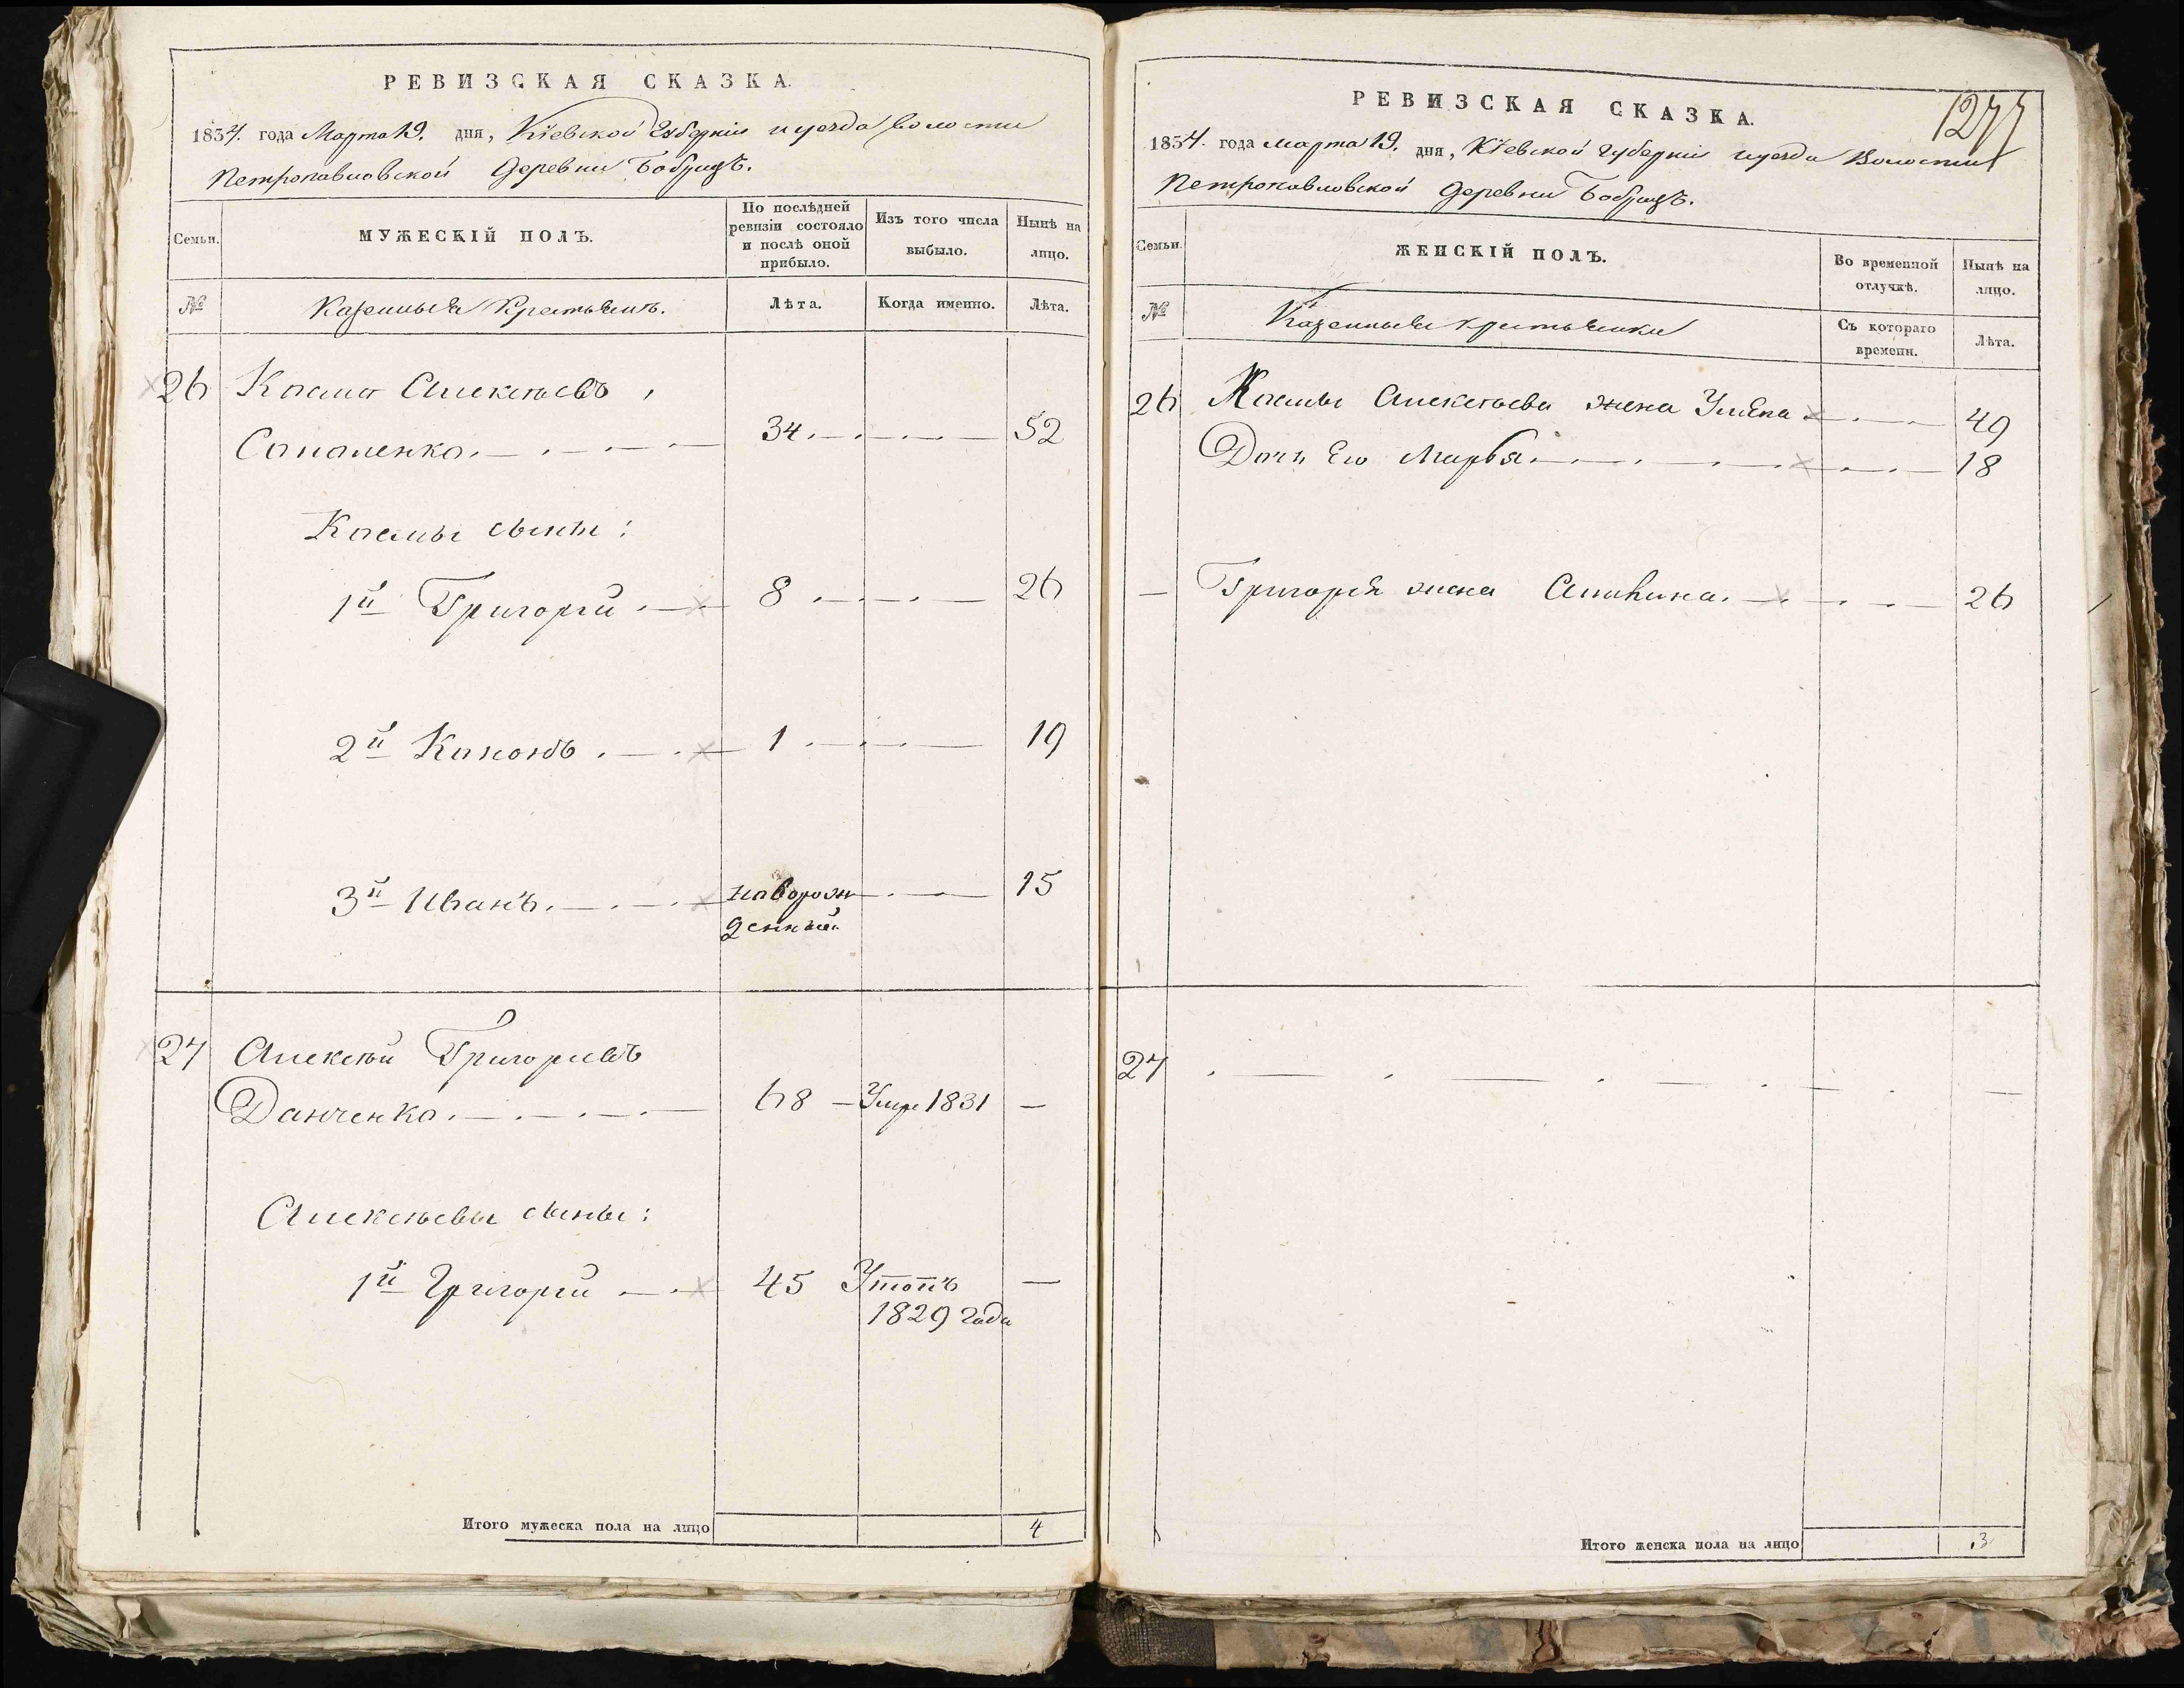 РЕВИЗСКАЯ СКАЗКА.
1834. года Марта 19. дня, Кіевской Губерніи и уезда волости
Петропавловской Деревни Бобрицъ.
Семьи. МУЖЕСКІЙ ПОЛЪ. По послѣдней ревизіи состояло и послѣ оной прибыло. Изъ того числа выбыло. Нынѣ на лицо.
№ Казенныя Крестьянъ. Лѣта. Когда именно. Лѣта.
26 Косма Алексѣевъ
34 52
Космы сыны:
1й Григорій 8 26
2й Кононъ 1 19
3й Иванъ новорож 15
денный
27 Алексѣй Григорьевъ
Данченко 68 Умре 1831 —
Алексѣевы сыны:
1й Григорій 45 Утопъ —
1829 года
Итого мужеска пола на лицо 4
1277
РЕВИЗСКАЯ СКАЗКА.
1834. года марта 19. дня, Кіевской губерніи и уезда Волости
Петропавловской Деревни Бобрицъ.
Семьи. ЖЕНСКІЙ ПОЛЪ. Во временной отлучкѣ. Нынѣ на лицо.
№ Казенныя крестьянки Съ котораго времени. Лѣта.
26 Космы Алексѣева жена Уліяна 49
Дочь Его Марья 18
— Григорія жена 26
27
Итого женска пола на лицо 3